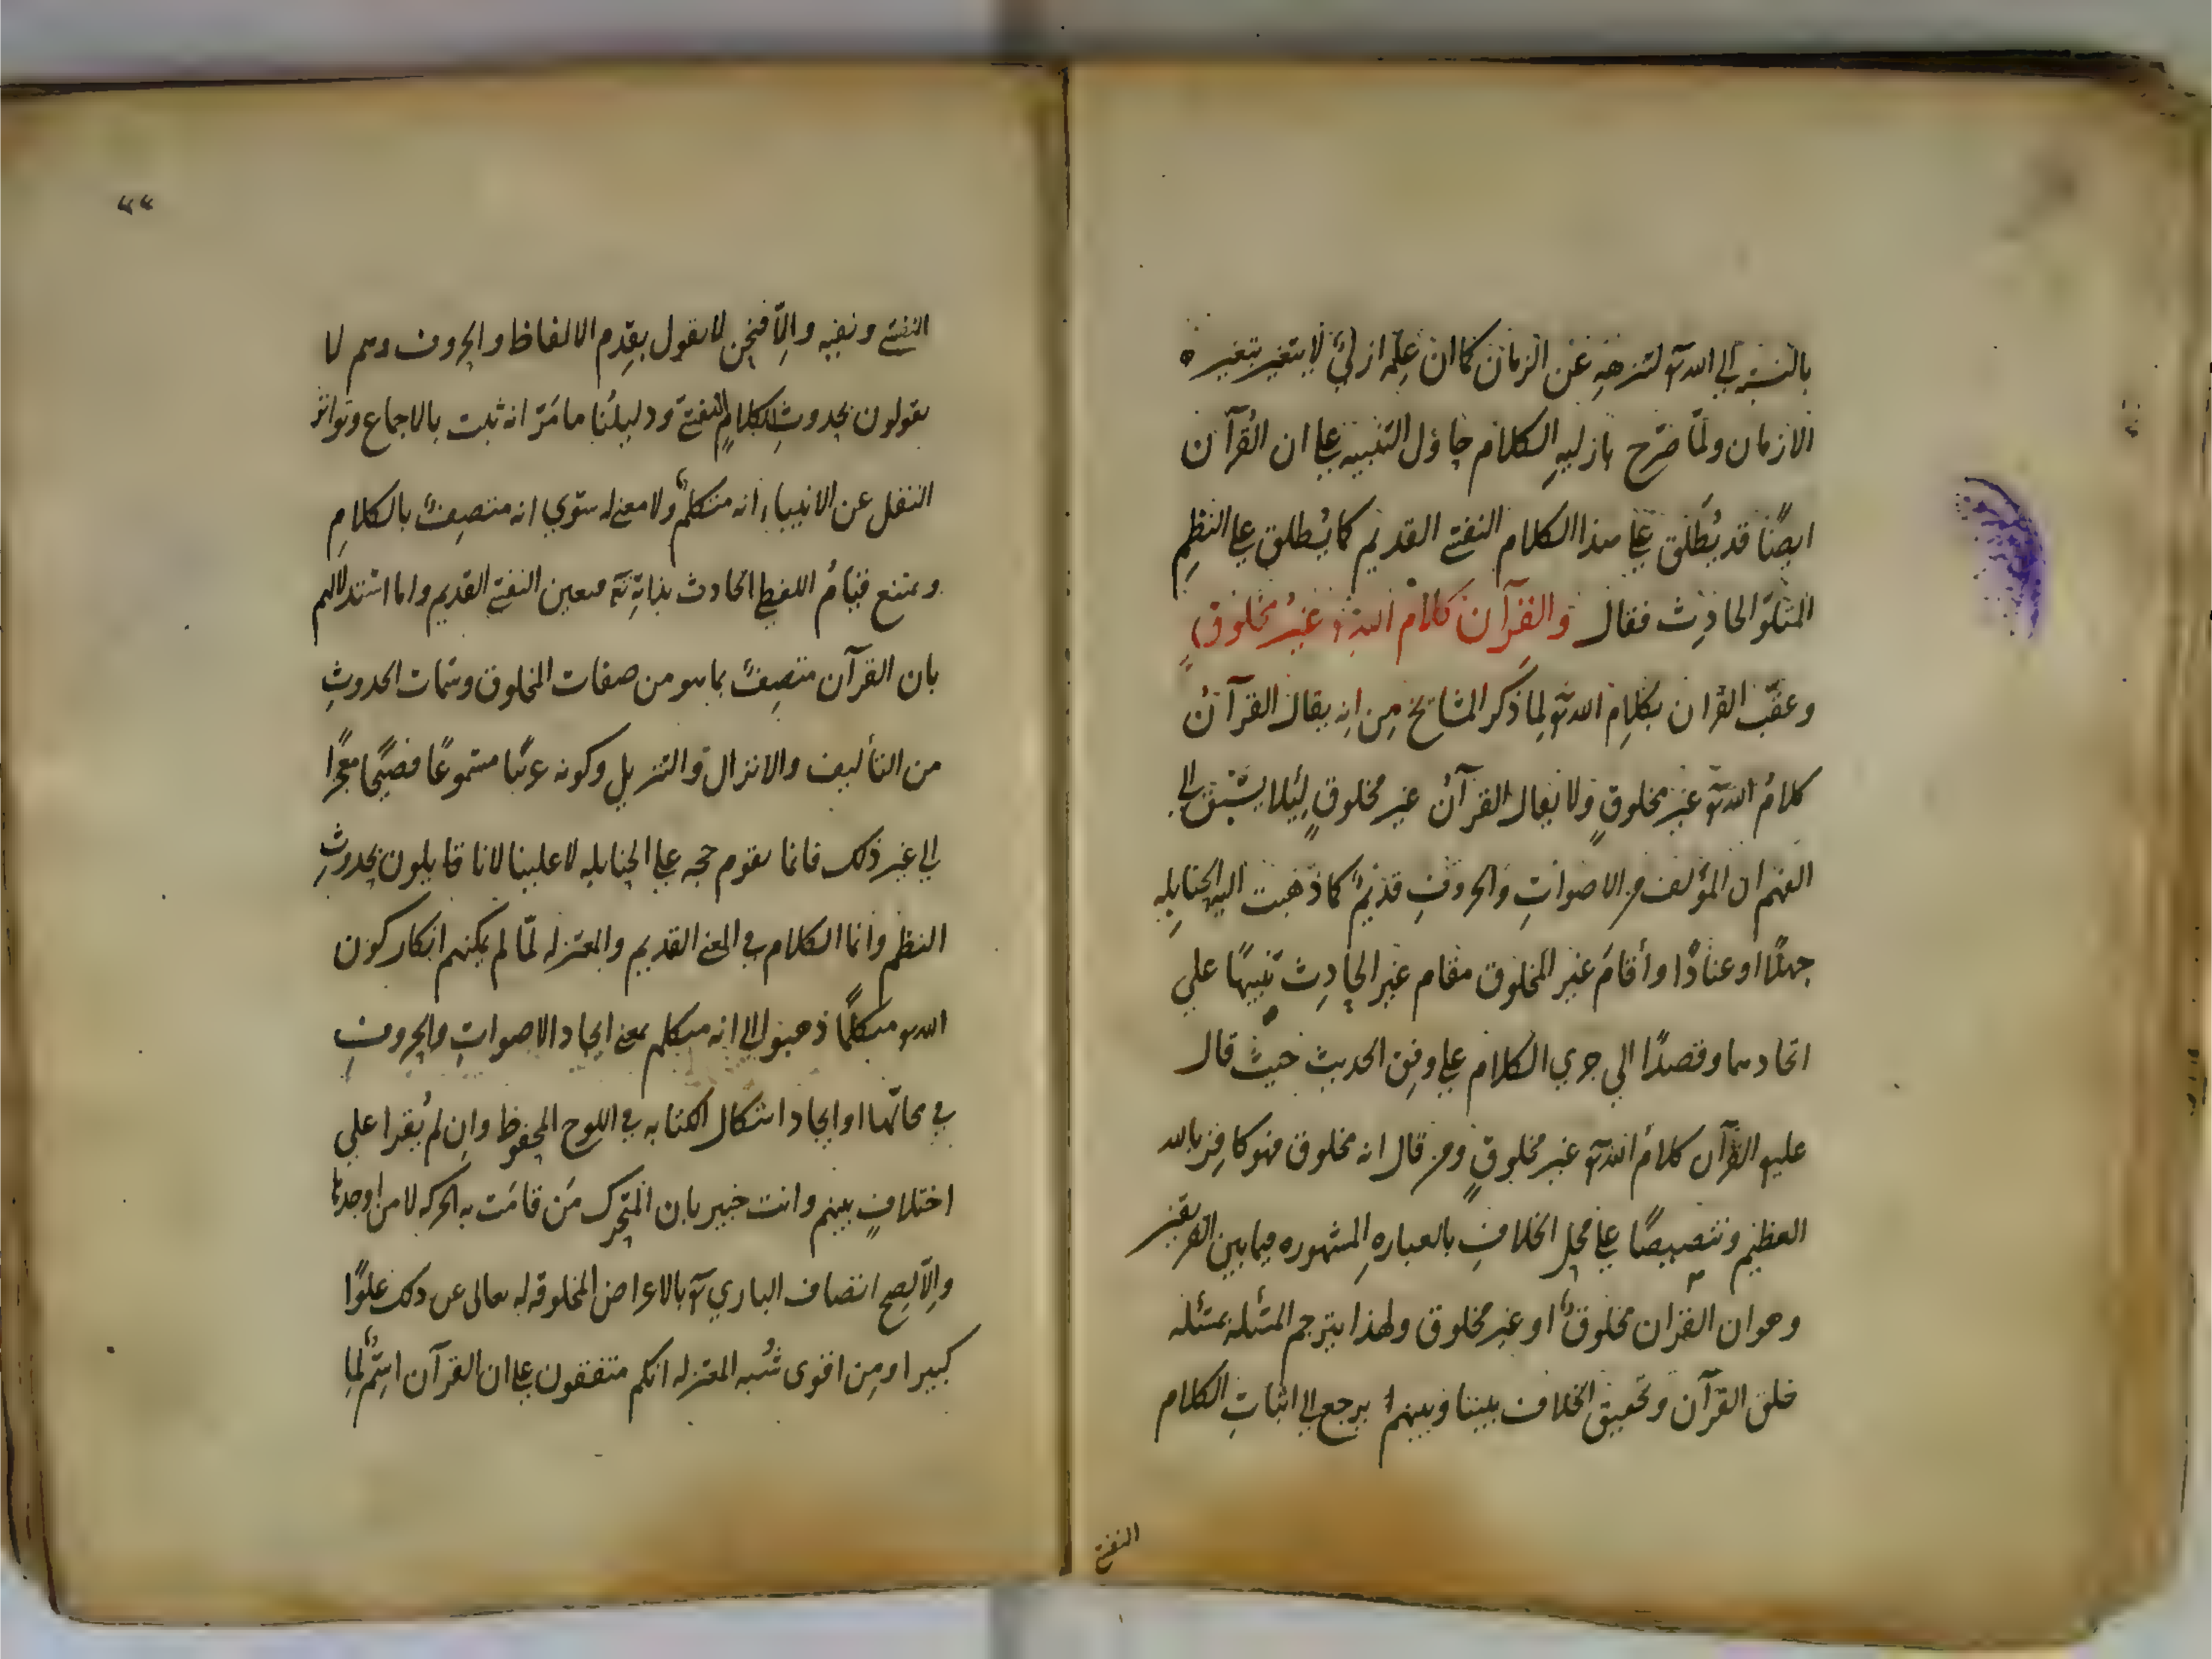 بالنسبة الي الله تع لتنزهه عن الزمان كما ان علمه ازلي لا يتغير بتغير
الازمان ولما صرح بازليه الكلام حاول التنبيه علي ان القرآن
ايضًا قد يُطلق علي هذا الكلام النفسي القديم كما يُطلق علي النظمِ
المتلوّ الحادِث فقال والقرآن كلام الله غيرُ مخلوق
وعقّب القرآن بكلام الله تع لِما ذكر المشايخ مِن انه يقال القرآنُ
كلامُ الله تع غير مخلوقٍ ولا يقال القرآنُ غير مخلوقٍ لِئلا يسبق الي
الفهم ان المؤلف من الاصواتِ والحروفِ قديمٌ كما ذهبت اليه الحنابله
جهلًا او عنادًا وأقامَ غير المخلوق مقام غير الحادِث تنبيهًا علي
اتحادهما وقصدًا الي جري الكلام علي وفق الحديث حيث قال
عليه القرآن كلامُ الله تع غير مخلوقٍ ومن قال انه مخلوق فهو كافِر بالله
العظيم وتنصيصًا علي محل الخلافِ بالعبارهِ المشهوره فيما بين الفريقين
وهو ان القرآن مخلوقٌ او غير مخلوق ولهذا يترجم المسئله بمسئله
خلق القرآن وتحقيق الخلاف بيننا وبينهم يرجع الي اثباتِ الكلام
النفسي
النفسي ونفيه والّا فنحن لا نقول بقِدم الالفاظ والحروف وهم لا
يقولون بحدوثِ الكلامِ النفسي ودليلُنا ما مَرّ انه ثبت بالاجماع وتواتر
النقل عن الانبياء انه متكلمٌ ولا معني له سوي انه متصِفٌ بالكلامِ
ويمتنع قيامُ اللفظِ الحادث بذاتِه تع فتعين النفسي القديم واما استدلالهم
بان القرآن متصِفٌ بما هو من صفات المخلوق وسمات الحدوثِ
من التأليف والانزال والتنزيل وكونه عربيًا مسموعًا فصيحًا معجزًا
الي غير ذلك فانما يقوم حجه علي الحنابله لا علينا لانا قايلون بحدوثِ
النظم وانما الكلام في المعني القديم والمعتزله لمّا لم يمكنهم انكار كون
الله تع متكلمًا ذهبوا الي انه متكلم بمعني ايجاد الاصواتِ والحروفِ
في محالّها او ايجاد اشكال الكتابه في اللوح المحفوظ وان لم يُقرا علي
اختلافٍ بينهم وانت خبير بان المتحرك مَن قامَت به الحركه لا من اوجدها
والّا لصح اتصاف الباري تع بالاعراض المخلوقه له تعالي عن ذلك علوًا
كبيرا ومِن اقوي شُبه المعتزله انكم متفقون علي ان القرآن اسمٌ لِما